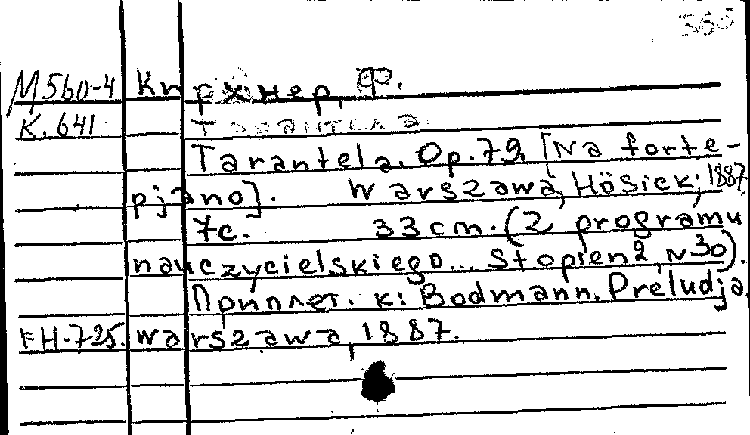 М560-4 Кирхнер, Ф.
К. 641 Тарантелла.
Tarantela. Op.79. [Na forte-
pjano]. Warszawa, Hösick, 1887.
7c. 33 cm. (Z programu
nauczycielskiego... Stopień 2, N30).
Приплет. к: Bodmann. Preludja.
FH-725. Warszawa, 1887.